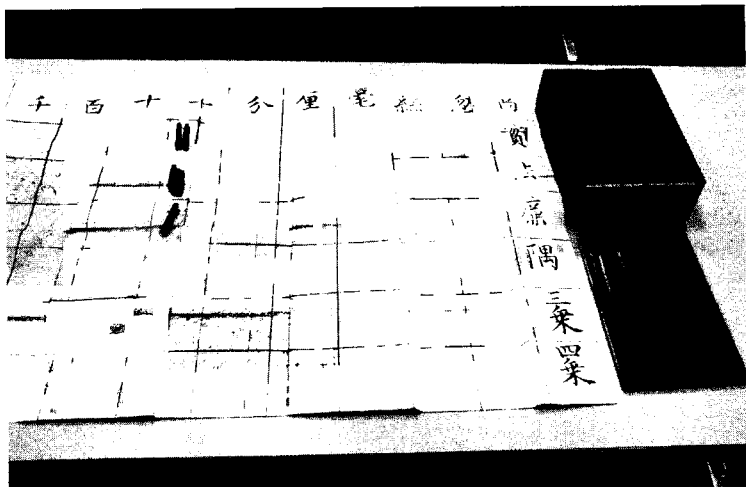 千 百 十 十 分 厘 毫 絲 忽 商
實
廉
隅
三乗
四乗